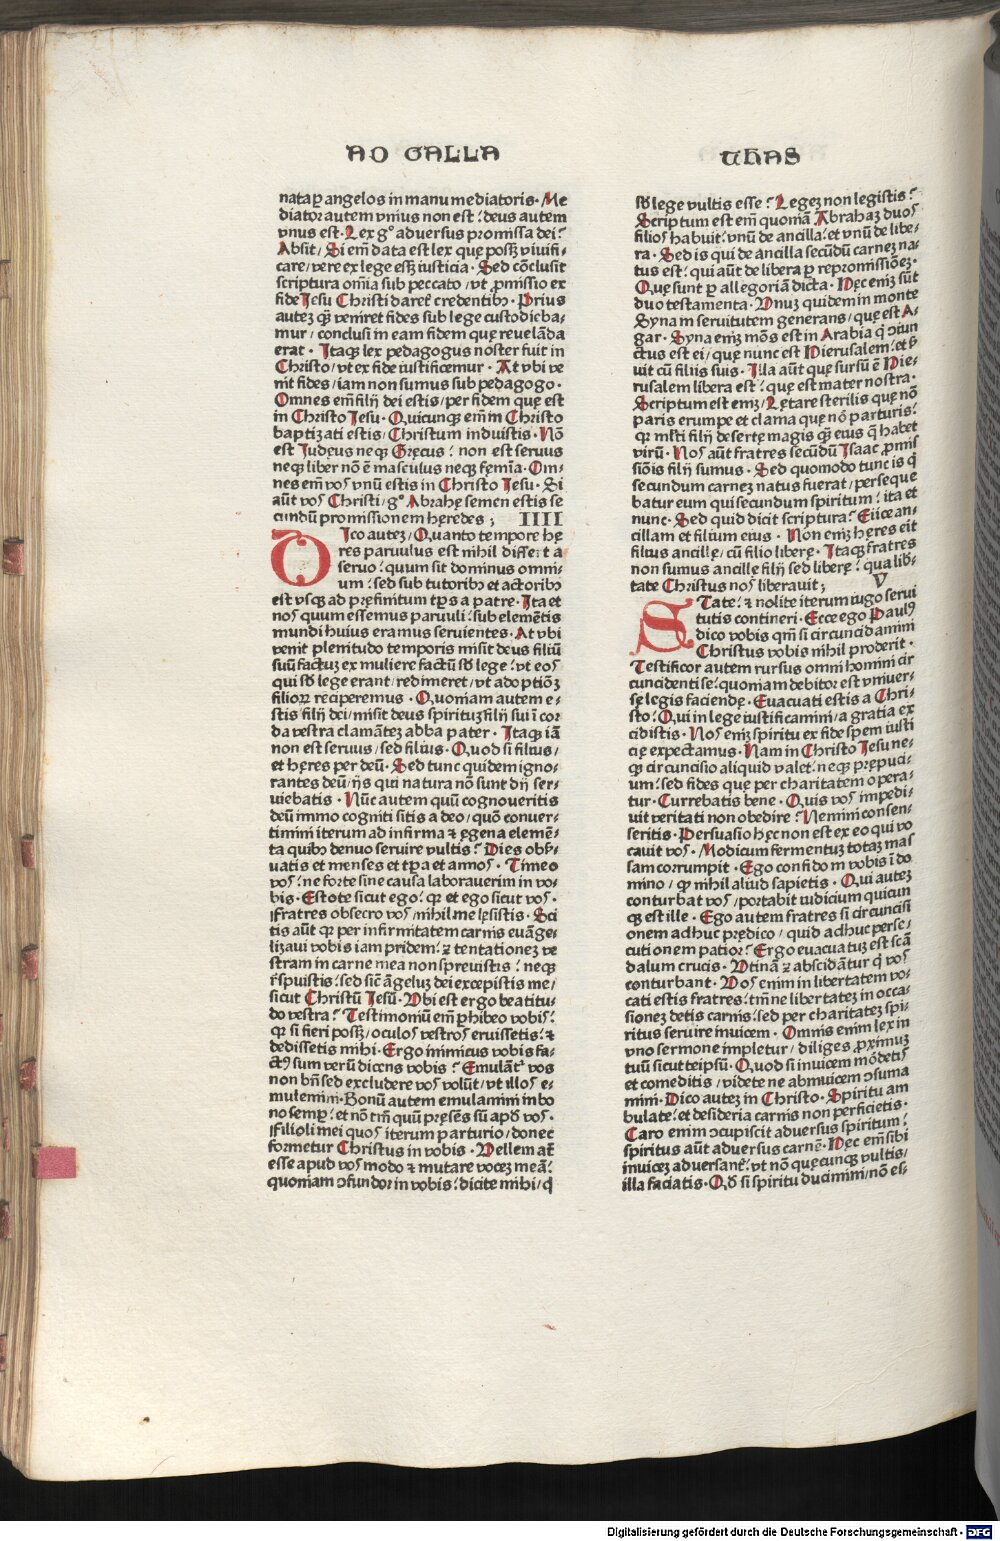 AD GALLA
THAS
nata ꝑ angelos in manu mediatoris· Me
diator autem vnius non est: deus autem
vnus est· Lex gº aduersus promissa dei?
Absit/ Si em̄ data est lex quę possꝫ viuifi-
care/ vere ex lege essꝫ iusticia· Sed cōclusit
scriptura om̄ia sub peccato/ vt ꝓmissio ex
fide Jesu Christi dareť credentibꝫ· Prius
auteꝫ qꝫ veniret fides sub lege custodieba-
mur/ conclusi in eam fidem quę reuelāda
erat· Itaqꝫ lex pedagogus noster fuit in
Christo/ vt ex fide iustificemur· At vbi ve
nit fides/ iam non sumus sub pedagogo·
Omnes em̄ filij dei estis/ per fidem quę est
in Christo Jesu· Quicunqꝫ em̄ in Christo
baptizati estis/ Christum induistis· Nō
est Judęus neqꝫ Gręcus: non est seruus
neqꝫ liber nō ē masculus neqꝫ fęmīa· Om-
nes em̄ vos vnū estis in Christo Jesu· Si
aūt vos Christi/ gº Abrahę semen estis se
cundū promissionem hęredes; IIII
DIco auteꝫ/ Quanto tempore hę
res paruulus est nihil differt a
seruo: quum sit dominus omni-
um: sed sub tutoribꝫ et actoribꝫ
est vsqꝫ ad pręfinitum tp̄s a patre· Ita et
nos quum essemus paruuli: sub elemētis
mundi huius eramus seruientes· At vbi
venit plenitudo temporis misit deus filiū
suū factuꝫ ex muliere factū sb̄ lege: vt eos
qui sb̄ lege erant/ redimeret/ vt adoptiōꝫ
filioꝝ reciperemus· Quoniam autem e-
stis filij dei/ misit deus spirituꝫ filij sui ī cor
da vestra clamāteꝫ abba pater· Itaqꝫ iā
non est seruus/ sed filius· Quod si filius/
et hęres per deū· Sed tunc quidem igno-
rantes deū/ ijs qui natura nō sunt dij ser-
uiebatis· Nūc autem quū cognoueritis
deū immo cogniti sitis a deo/ quō conuer-
timini iterum ad infirma ⁊ ęgena elemē-
ta quibꝫ denuo seruire vultis? Dies obs̄-
uatis et menses et tp̄a et annos· Timeo
vos: ne forte sine causa laborauerim in vo-
bis· Estote sicut ego: qꝛ et ego sicut vos·
Fratres obsecro vos/ nihil me lęsistis· Sci
tis aūt qꝛ per infirmitatem carnis euāge-
lizaui vobis iam pridem: ⁊ tentationeꝫ ve
stram in carne mea non spreuistis: neqꝫ
r̄spuistis: sed sic̄ āgeluꝫ dei excepistis me/
sicut Christū Jesū· Vbi est ergo beatitu-
do vestra? Testimoniū em̄ ꝑhibeo vobis:
qꝛ si fieri possꝫ/ oculos vestros eruissetis: ⁊
dedissetis mihi· Ergo inimicus vobis fa-
ctꝰ sum verū dicens vobis? Emulāť vos
non bn̄ sed excludere vos volūt/ vt illos e-
mulemini· Bonū autem emulamini in bo
no semꝑ: et nō tm̄ quū pręsēs sū apd̄ vos·
Filioli mei quos iterum parturio/ donec
formetur Christus in vobis· Vellem aūt
esse apud vos modo ⁊ mutare voceꝫ meā:
quoniam ↄfundor in vobis: dicite mihi/ q̇
sb̄ lege vultis esse? Legeꝫ non legistis?
Scriptum est em̄ quoniā Abrahaꝫ duos
filios habuit: vnū de ancilla: et vnū de libe-
ra· Sed is qui de ancilla secūdū carneꝫ na-
tus est: qui aūt de libera ꝑ repromissiōeꝫ·
Quę sunt ꝑ allegoriā dicta· Nęc eniꝫ sūt
duo testamenta· Vnuꝫ quidem in monte
Syna in seruitutem generans/ quę est A-
gar· Syna eniꝫ mōs est in Arabia q̇ ↄiun
ctus est ei/ quę nunc est Hierusalem: et ẜ
uit cū filiis suis· Illa aūt quę sursū ē Hie-
rusalem libera est: quę est mater nostra·
Scriptum est eniꝫ/ Lętare sterilis quę nō
paris erumpe et clama quę nō parturis:
qꝛ ml̄ti filij desertę magis qꝫ eius q̄ habet
virū· Nos aūt fratres secūdū Isaac ꝓmis
siōis filij sumus· Sed quomodo tunc is q̇
secundum carneꝫ natus fuerat/ perseque
batur eum qui secundum spiritum: ita et
nunc· Sed quid dicit scriptura? Eiice an-
cillam et filium eius· Non eniꝫ hęres erit
filius ancillę/ cū filio liberę· Itaqꝫ fratres
non sumus ancillę filij sed liberę: qua lib-
tate Christus nos liberauit; V
STate: ⁊ nolite iterum iugo serui
tutis contineri· Ecce ego Paulꝰ
dico vobis qm̄ si circuncidamini
Christus vobis nihil proderit·
Testificor autem rursus omni homini cir
cuncidenti se: quoniam debitor est vniuer-
sę legis faciendę· Euacuati estis a Chri-
sto: Qui in lege iustificamini/ a gratia ex
cidistis· Nos eniꝫ spiritu ex fide spem iusti
cię expectamus· Nam in Christo Jesu ne-
qꝫ circuncisio aliquid valet: neqꝫ prępuci-
um: sed fides quę per charitatem opera-
tur· Currebatis bene· Quis vos impedi-
uit veritati non obedire? Nemini consen-
seritis· Persuasio hęc non est ex eo qui vo
cauit vos· Modicum fermentuꝫ totaꝫ mas
sam corrumpit· Ego confido in vobis ī do
mino/ qꝛ nihil aliud sapietis· Qui auteꝫ
conturbat vos/ portabit iudicium quicun
qꝫ est ille· Ego autem fratres si circuncisi
onem adhuc prędico/ quid adhuc perse/
cutionem patior? Ergo euacuatuꝫ est scā
dalum crucis· Vtinā ⁊ abscidāt̄ur q̇ vos
conturbant· Vos enim in libertatem vo-
cati estis fratres: tm̄ ne libertateꝫ in occa-
sioneꝫ detis carnis: sed per charitateꝫ spi-
ritus seruire inuicem· Omnis enim lex in
vno sermone impletur/ diliges ꝓximuꝫ
tuū sicut teipsū· Quod si inuicem mōdetis
et comeditis/ videte ne abinuicem ↄsuma
mini· Dico auteꝫ in Christo· Spiritu am
bulate: et desideria carnis non perficietis·
Caro enim ↄcupiscit aduersus spiritum:
spiritus aūt aduersus carnē· Hęc em̄ sibi
inuiceꝫ aduersant̄: vt nō quęcunqꝫ vultis/
illa faciatis· Qd̄ si spiritu ducimini/ nō es-
Digitalisierung gefördert durch die Deutsche Forschungsgemeinschaft - DFG